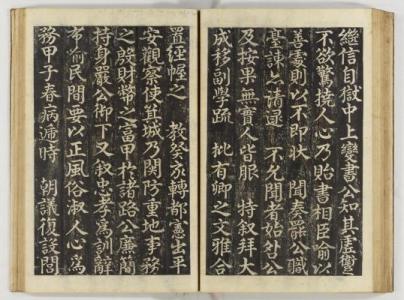 繼信自獄中上變書公知其虛銜
不欲驚撓人心乃貽書相臣喻以
善處則以不即狀 聞奏罷公職
臺諫之請逮 不允聞者始谷公
及按果無實人皆服 特叙拜大
成移副學疏 批有卿之文雅合
置經幄之 教癸亥轉都憲出平
安觀察使箕城乃關防重地事務
之殷財幣之富甲於諸路公廉簡
持身嚴公御下又叔忠孝爲訓辭
布喻民間要以正風俗淑人心爲
務甲子春病遞時 朝議復設閭